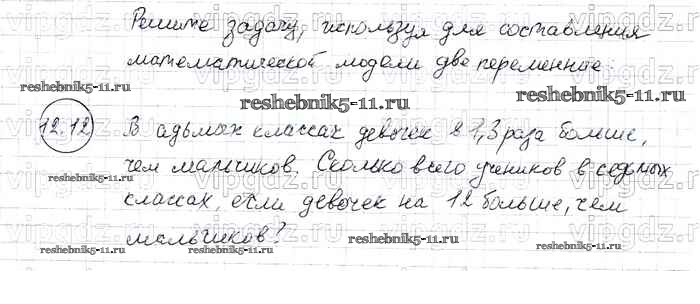 Решите задачу, используя для составления
математической модели две переменные:
reshebnik5-11.ru
reshebnik5-11.ru
reshebnik5-11.ru
12.12 В адьмых классах девочек в 1,3 раза больше,
чем мальчиков. Сколько всего учеников в седьмых
reshebnik5-11.ru
reshebnik5-11.ru
классах, если девочек на 12 больше, чем
мальчиков?
reshebnik5-11.ru
reshebnik5-11.ru
reshebnik5-11.ru
vipgdz.ru